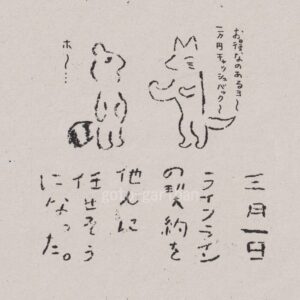 お得なのあるヨ〜
一万円キャッシュバック〜
ホ〜…
三月一日
ラインライン
の契約を
他人に
任せそう
になった。